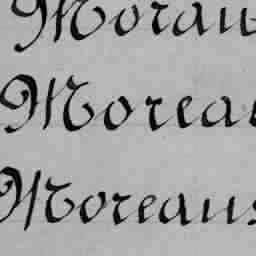 Morau
Moreau
Moreaus